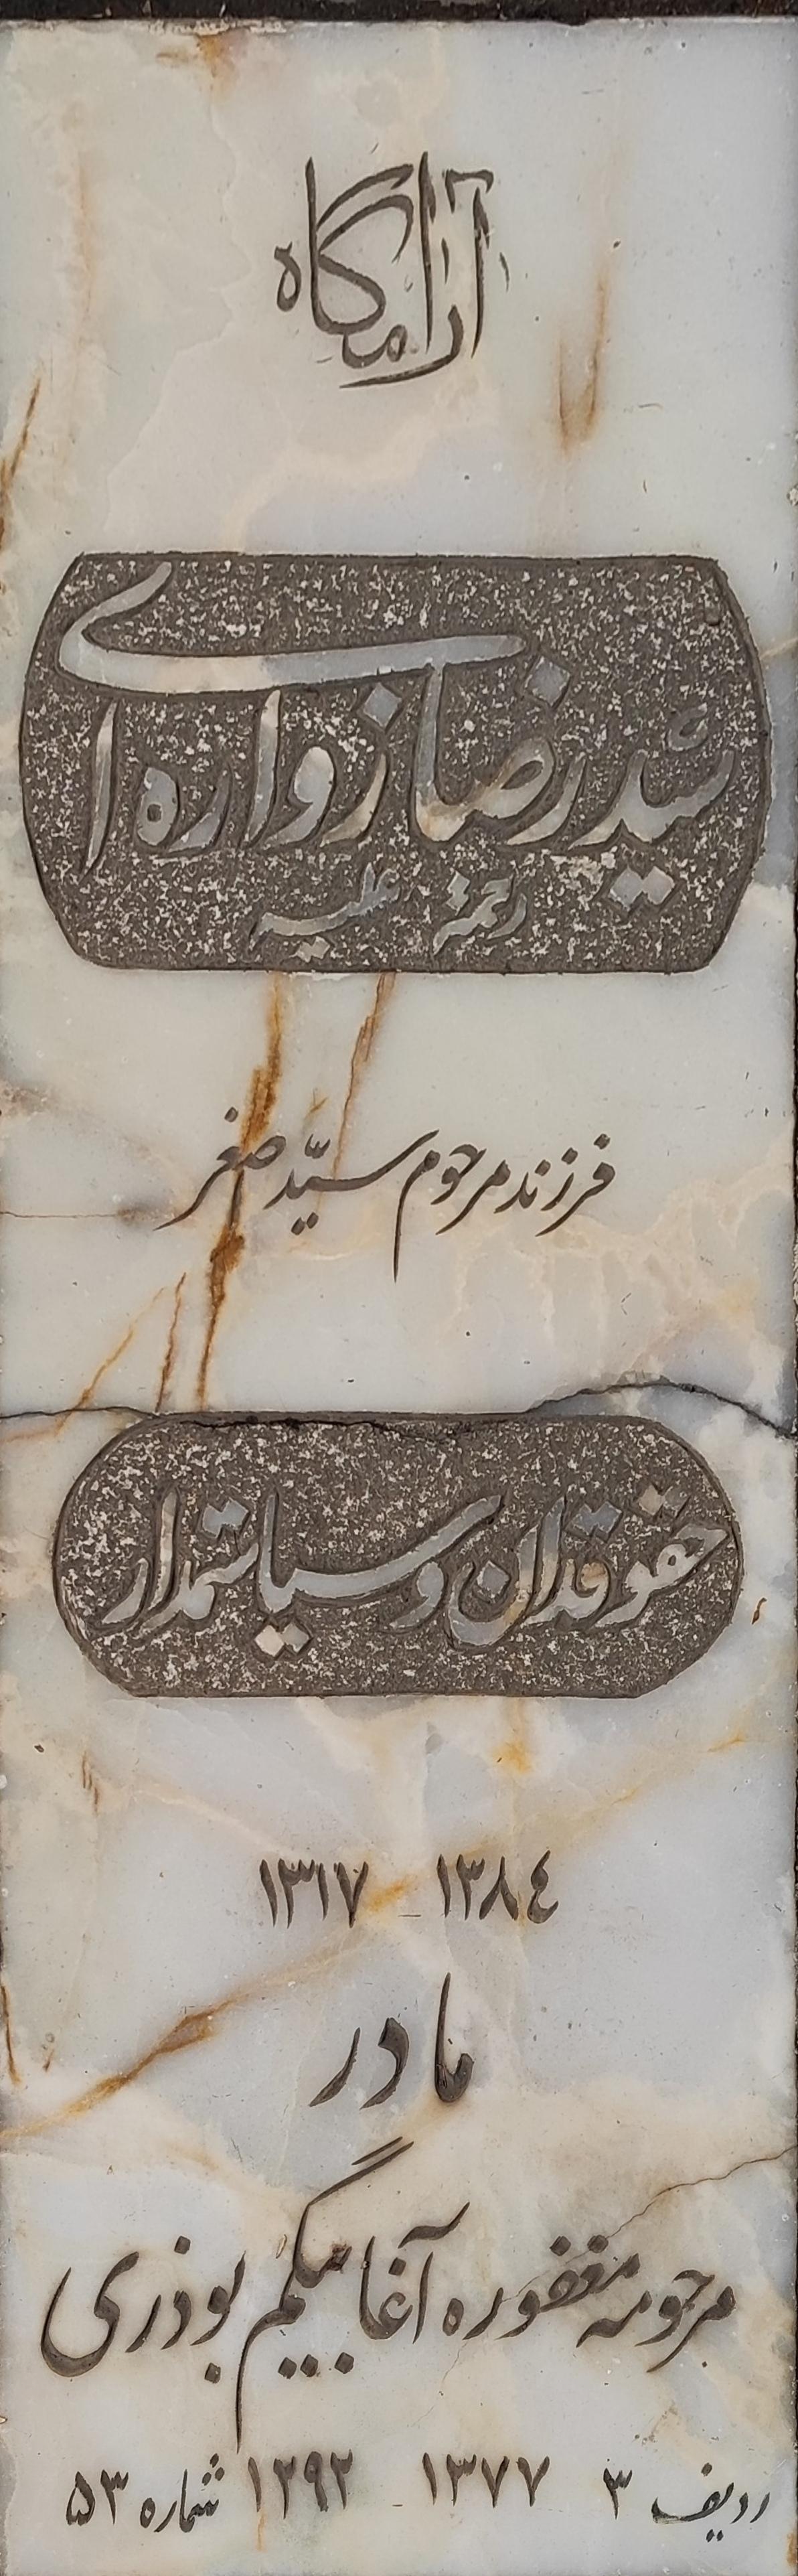 آرامگاه
سیدرضا زواره‌ای
رحمة علیه
فرزند مرحوم سیّد صغر
حقوقدان و سیاستمدار
۱۳۸٤ - ۱۳۱۷
مادر
مرحومه مغفوره آغابیگم بوذری
ردیف ۳ ۱۳۷۷ - ۱۲۹۲ شماره ۵۳